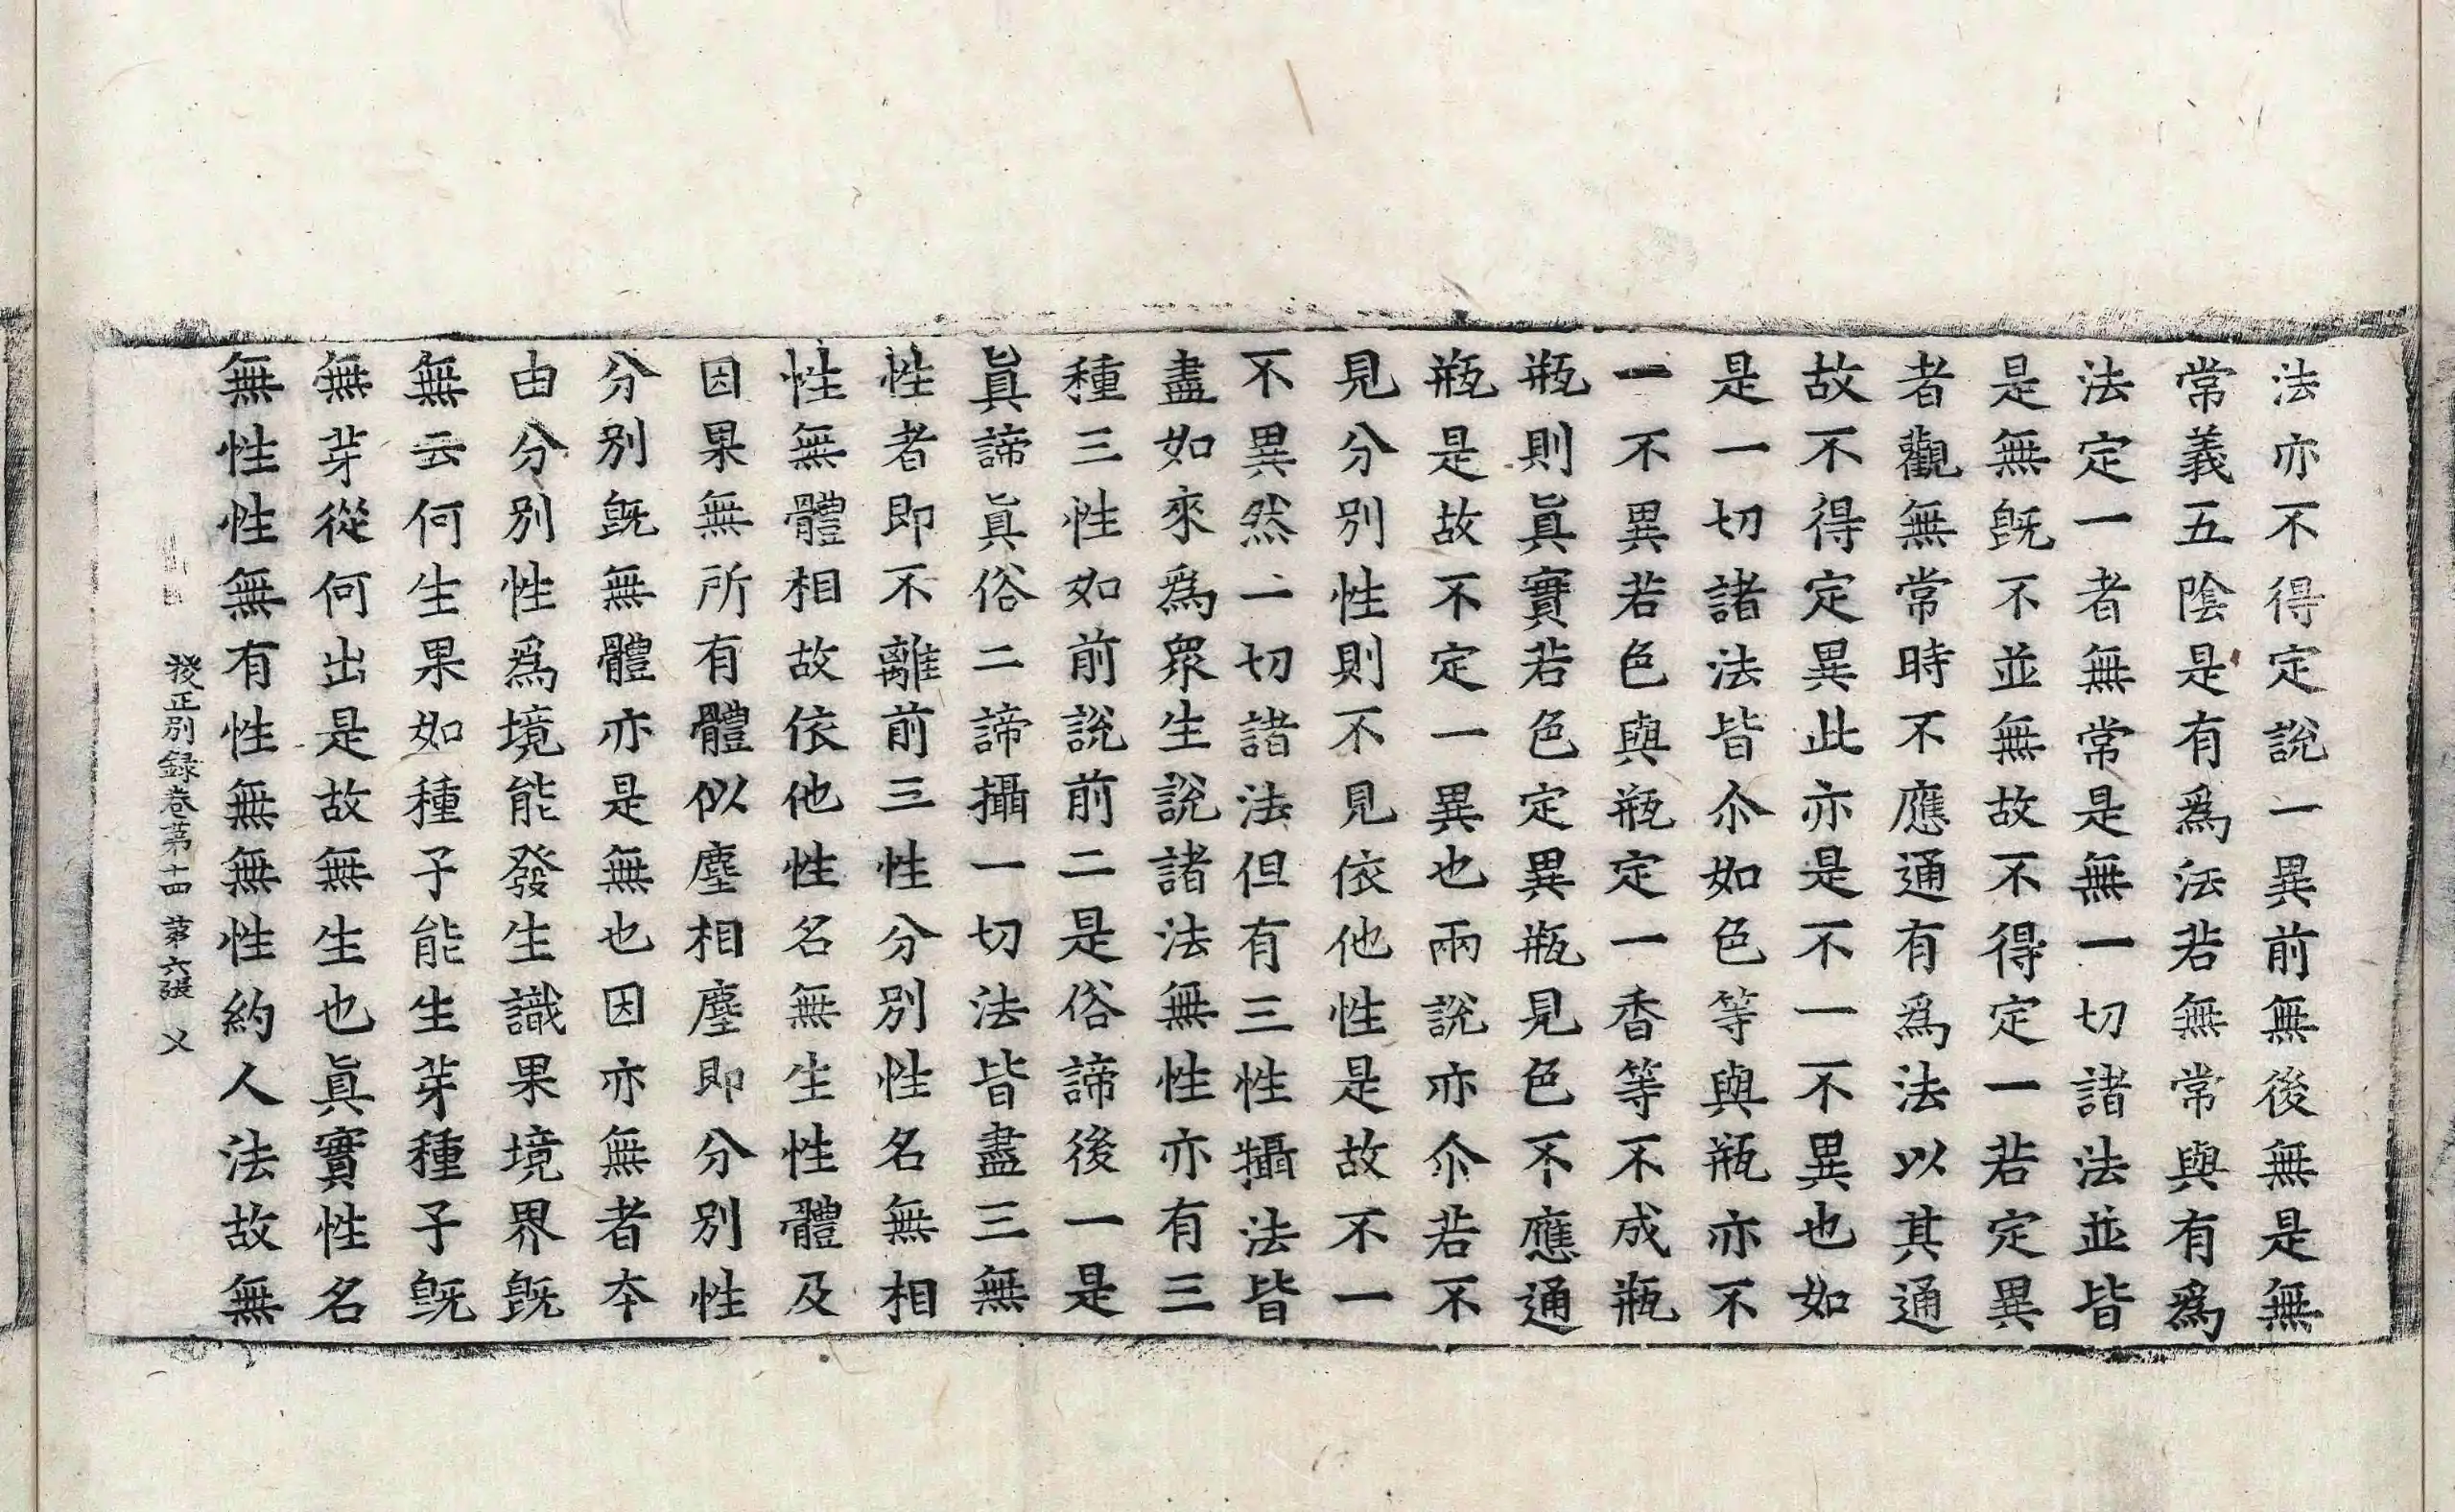 法亦不得定說一異前無後無是無
常義五陰是有爲法若無常與有爲
法定一者無常是無一切諸法並皆
是無旣不並無故不得定一若定異
者觀無常時不應通有爲法以其通
故不得定異此亦是不一不異也如
是一切諸法皆尒如色等與瓶亦不
一不異若色與瓶定一香等不成瓶
瓶則眞實若色定異瓶見色不應通
瓶是故不定一異也兩說亦尒若不
見分別性則不見依他性是故不一
不異然一切諸法但有三性攝法皆
盡如來爲眾生說諸法無性亦有三
種三性如前說前二是俗諦後一是
眞諦眞俗二諦攝一切法皆盡三無
性者即不離前三性分別性名無相
性無體相故依他性名無生性體及
因果無所有體似塵相塵即分別性
分別旣無體亦是無也因亦無者夲
由分別性爲境能發生識果境界旣
無云何生果如種子能生芽種子旣
無芽從何出是故無生也眞實性名
無性性無有性無無性約人法故無
挍正別録卷苐十四 苐六張 乂